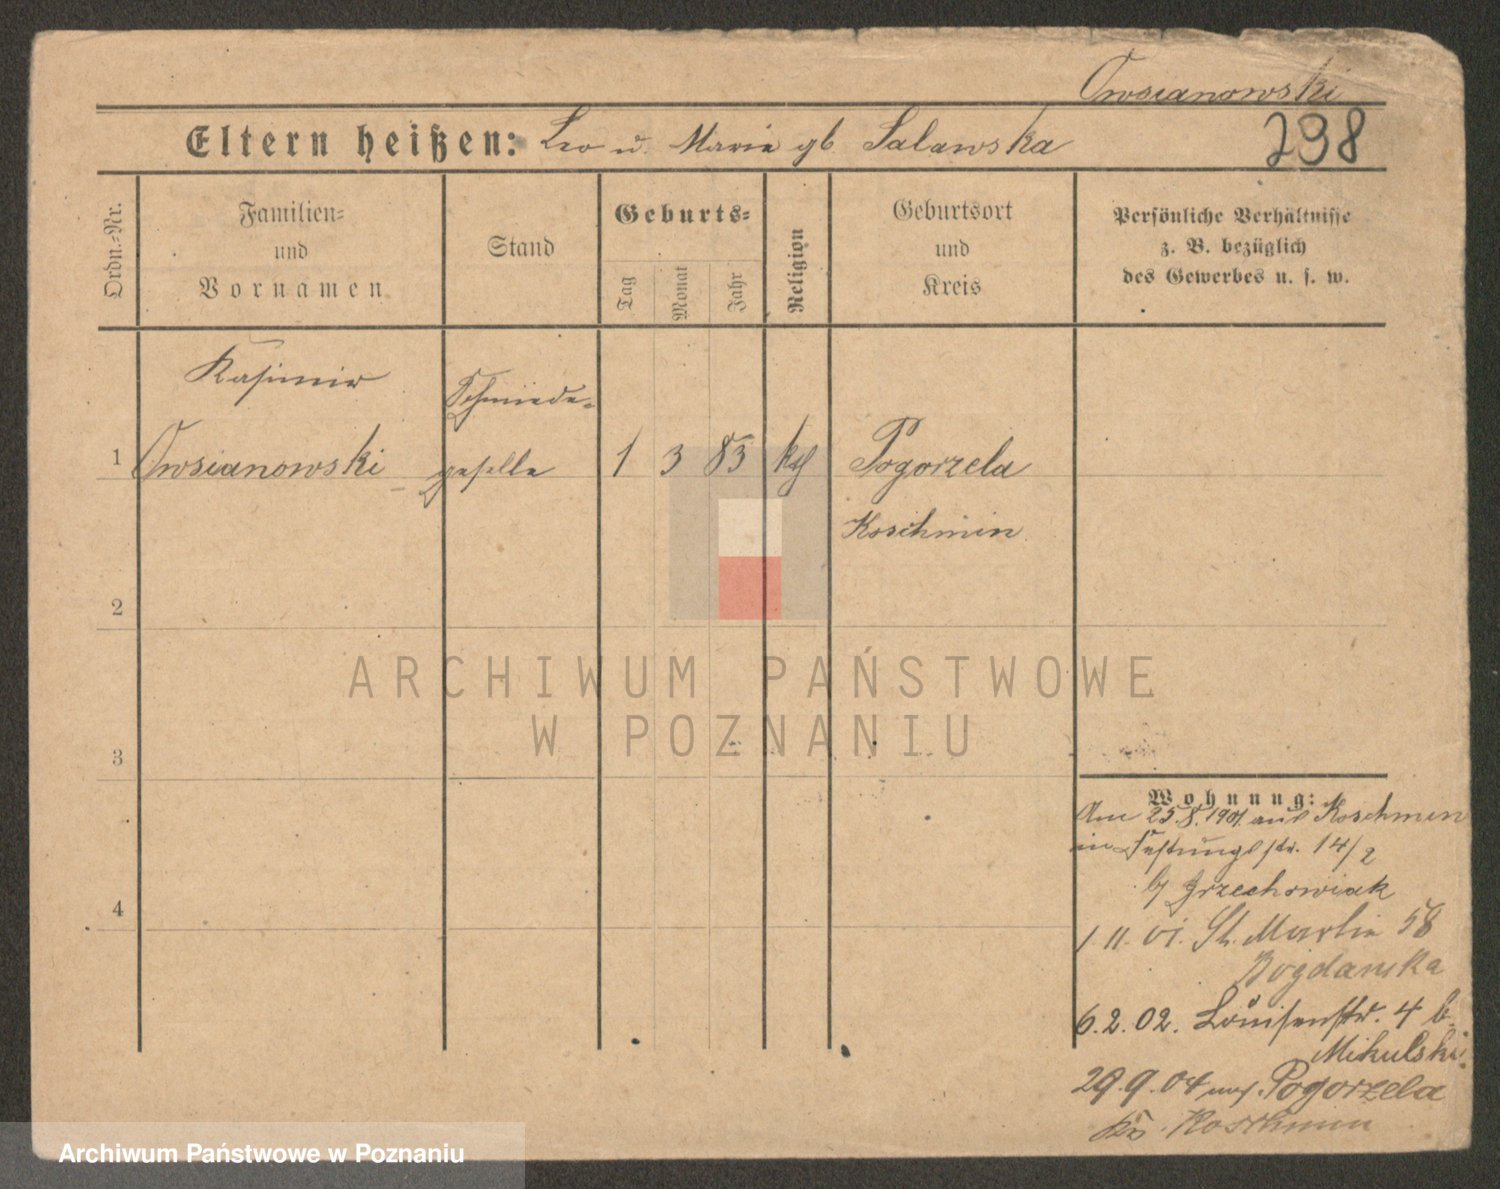 Owsianowski
Eltern heißen: Leo u. Marie gb. Salawska
298
Ordn.-Nr.
Familien-
und
Vornamen
Stand
Geburts-
Tag
Monat
Jahr
Religion
Geburtsort
und
Kreis
Persönliche Verhältnisse
z. B. bezüglich
des Gewerbes u. s. w.
Kasimir
Schmiede-
1 Owsianowski geselle 1 3 83 kth Pogorzela
Koschmin
2
ARCHIWUM PAŃSTWOWE
W POZNANIU
3
Wohnung:
Am 25.8.1901 aus Koschmin
in Festungsstr. 14/2
b/ Grzechowiak
4
1.11.01. St. Martin 58
Bogdanska
6.2.02. Louisenstr. 4 b.
Mikulski
29.9.04 nach Pogorzela
Krs. Koschmin
Archiwum Państwowe w Poznaniu